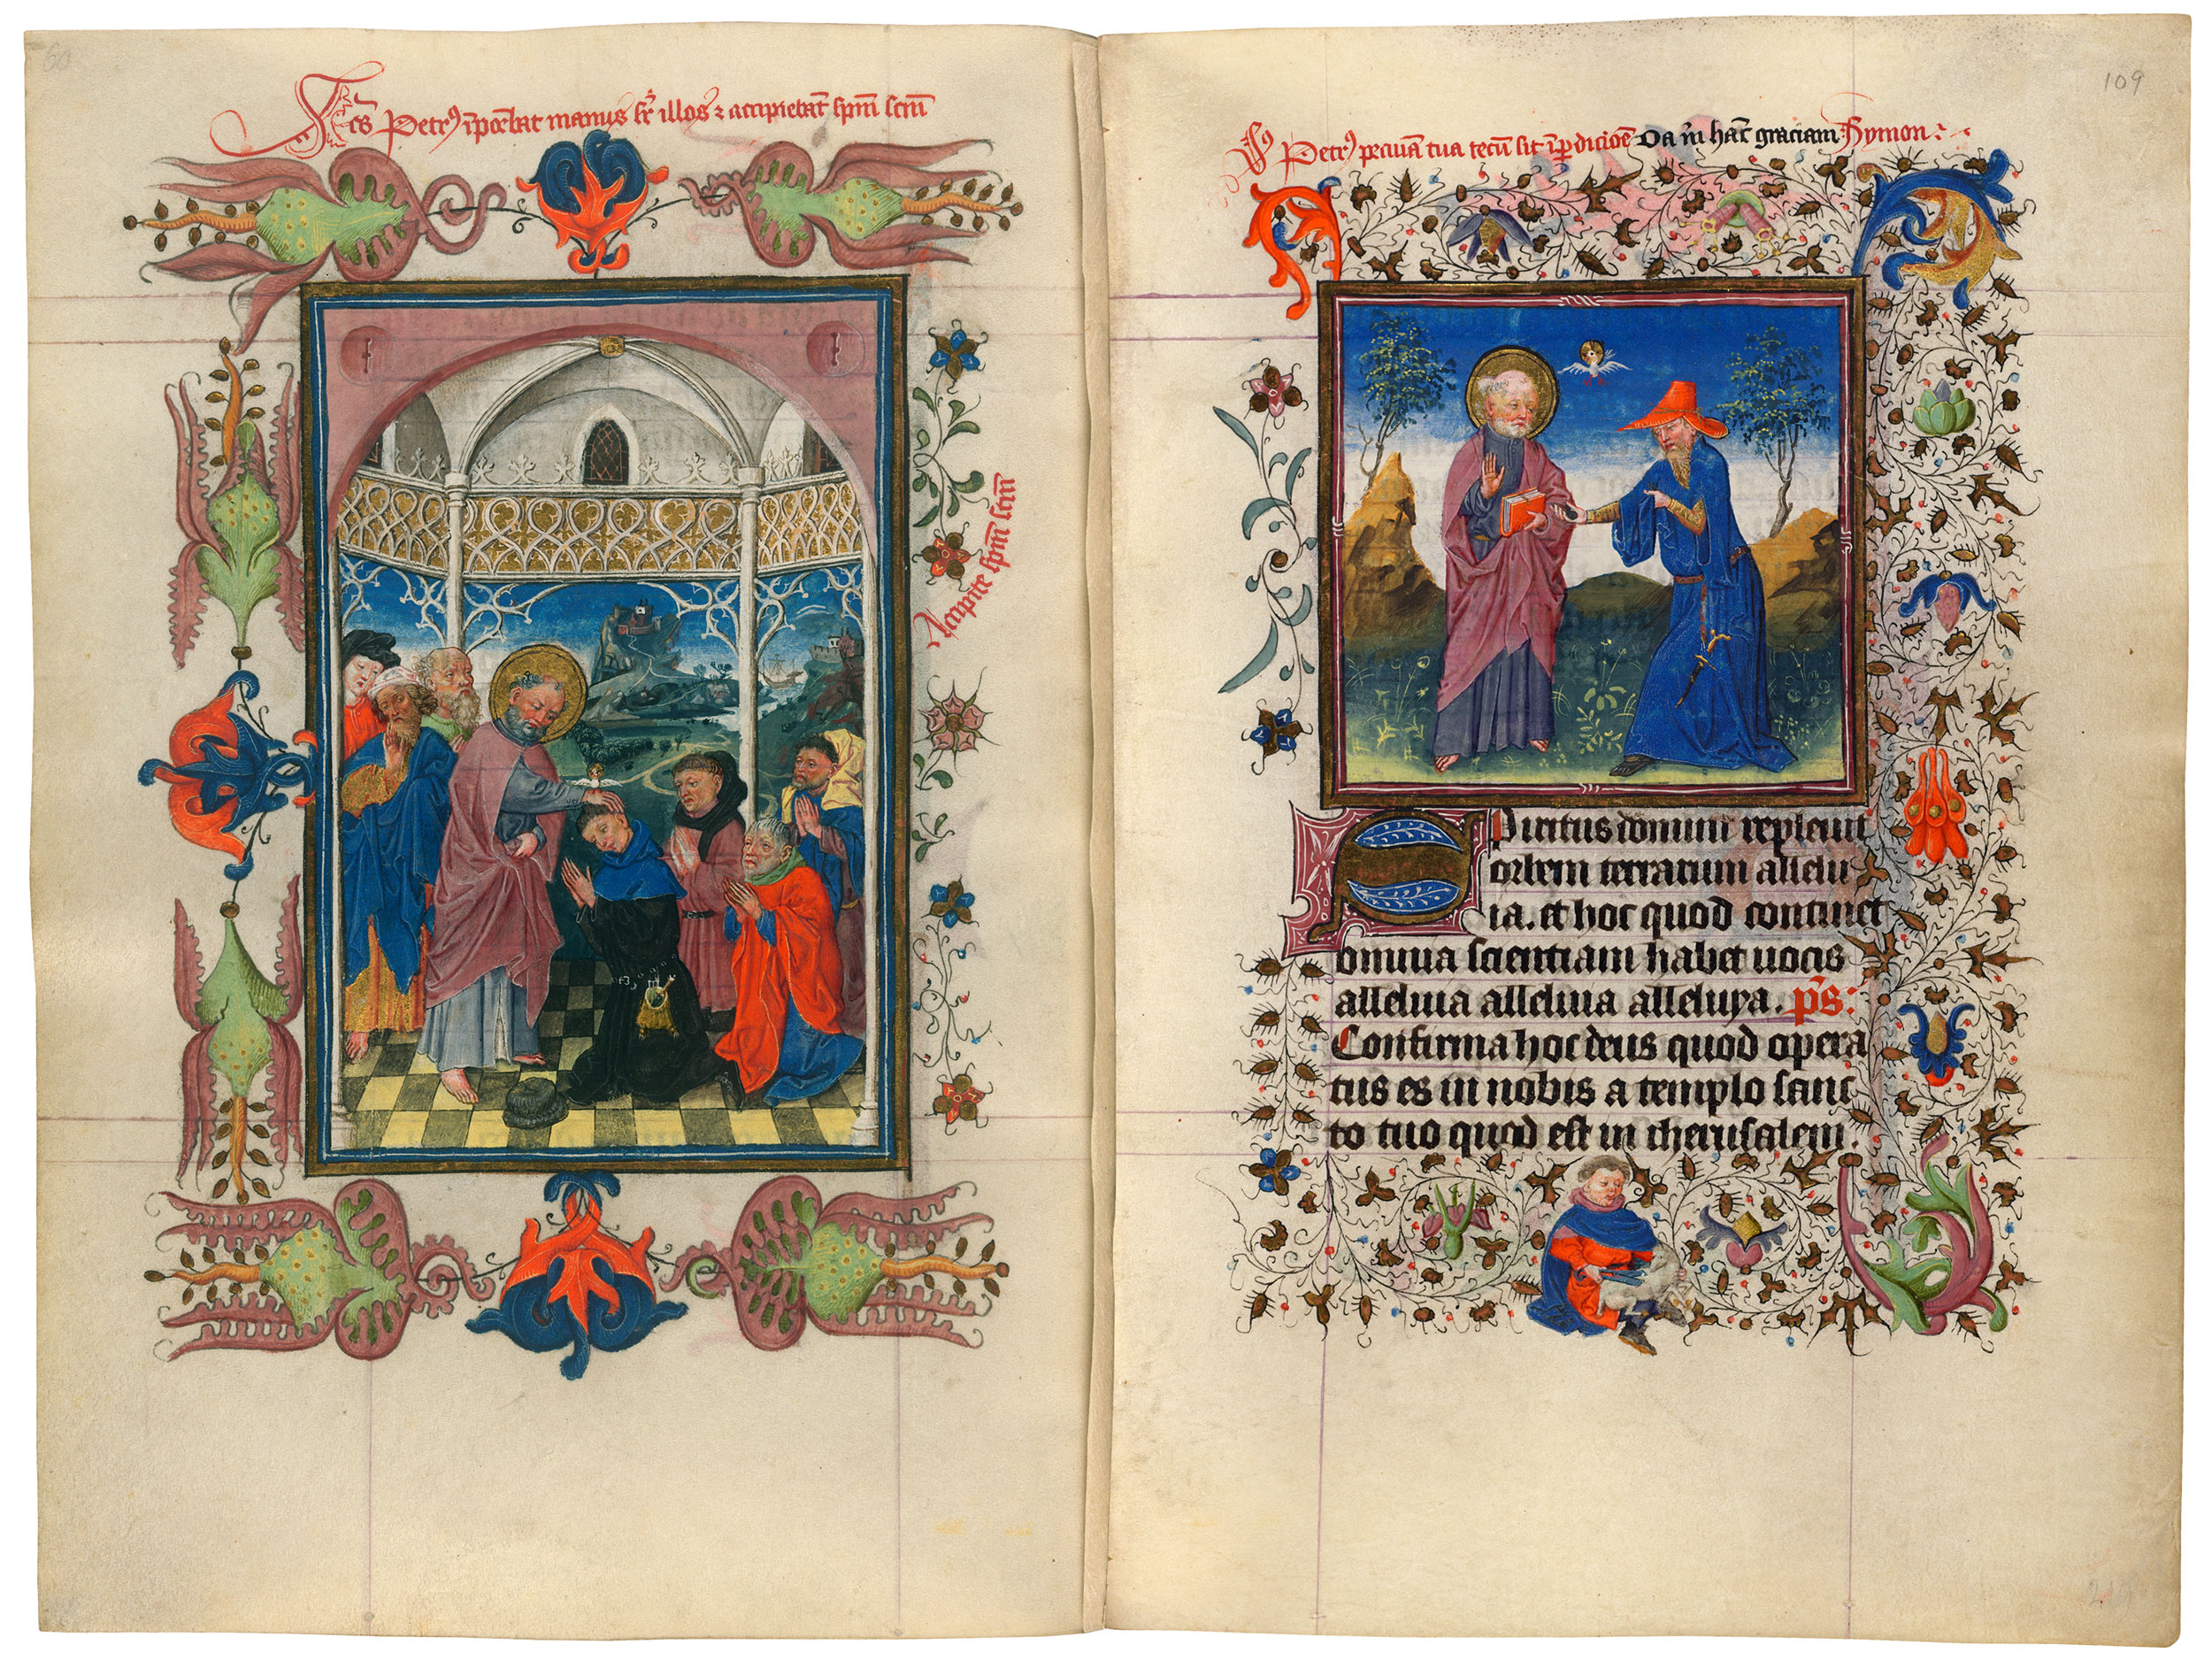 60
Scs Petrꝰ īponebat manus sr̄ illos ⁊ accipiebāt spm̄ scm̄
Accipite spm̄ scm̄
109
Scs Petrꝰ pecūia tua tecū sit ī ꝑdicioē Da m̄ hāc graciam Symon
Spiritus domini repleuit
orbem terrarum allelu
ia. et hoc quod continet
omnia scientiam habet uocis
alleluia alleluia alleluya. p̄s:
Confirma hoc deus quod opera
tus es in nobis a templo sanc
to tuo quod est in iherusalem.